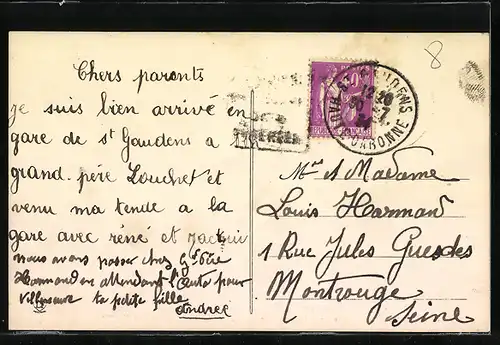 Chers parents
je suis bien arrivé en
gare de St Gaudens a
grand-père Louchet et
venu ma tende a la
gare avec réné et
nous avons passer chez
Harmand en attendant l'auto pour
ta petite fille
Andreé
8
GAUDENS
GARONNE
Mr et Madame
Louis Harmand
1 Rue Jules Guesdes
Montrouge
Seine